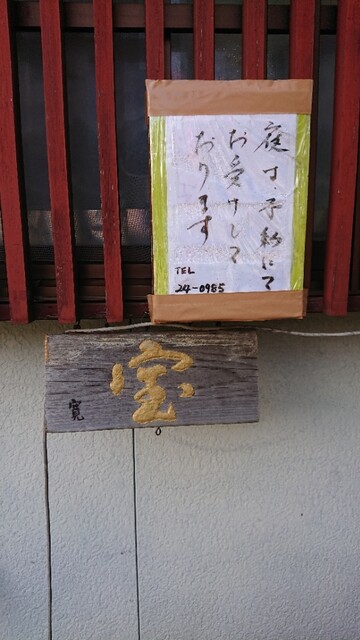 庭す.予約にて
お受けして
おります
TEL
24-0985
宝
寛